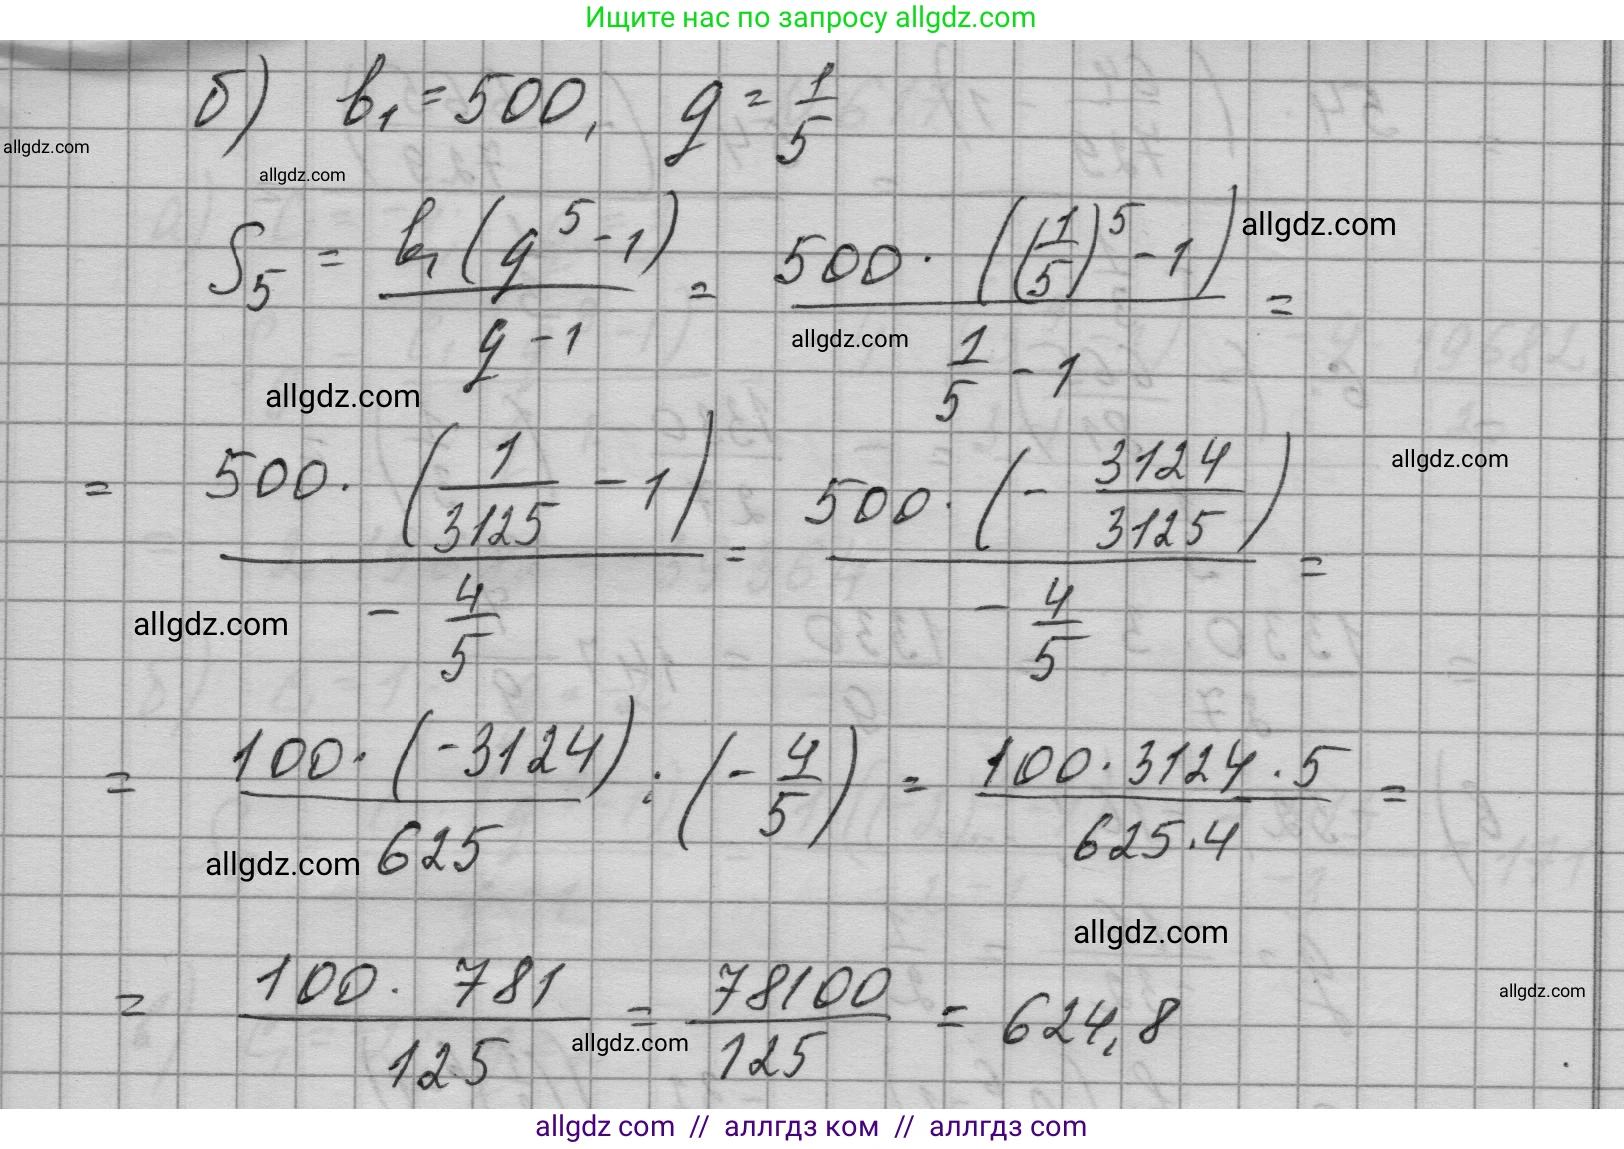 Ищите нас по запросу allgdz.com
б) b₁ = 500, q = 1/5
allgdz.com
allgdz.com
S₅ = b₁(q⁵ - 1)/(q - 1) = 500 · ((1/5)⁵ - 1)/(1/5 - 1) =
allgdz.com
allgdz.com
allgdz.com
= 500 · (1/3125 - 1)/(- 4/5) = 500 · (- 3124/3125)/(- 4/5) =
allgdz.com
allgdz.com
= 100 · (-3124)/625 : (- 4/5) = 100 · 3124 · 5/(625 · 4) =
allgdz.com
allgdz.com
= 100 · 781/125 = 78100/125 = 624,8
allgdz.com
allgdz.com
allgdz com // аллгдз ком // аллгдз com